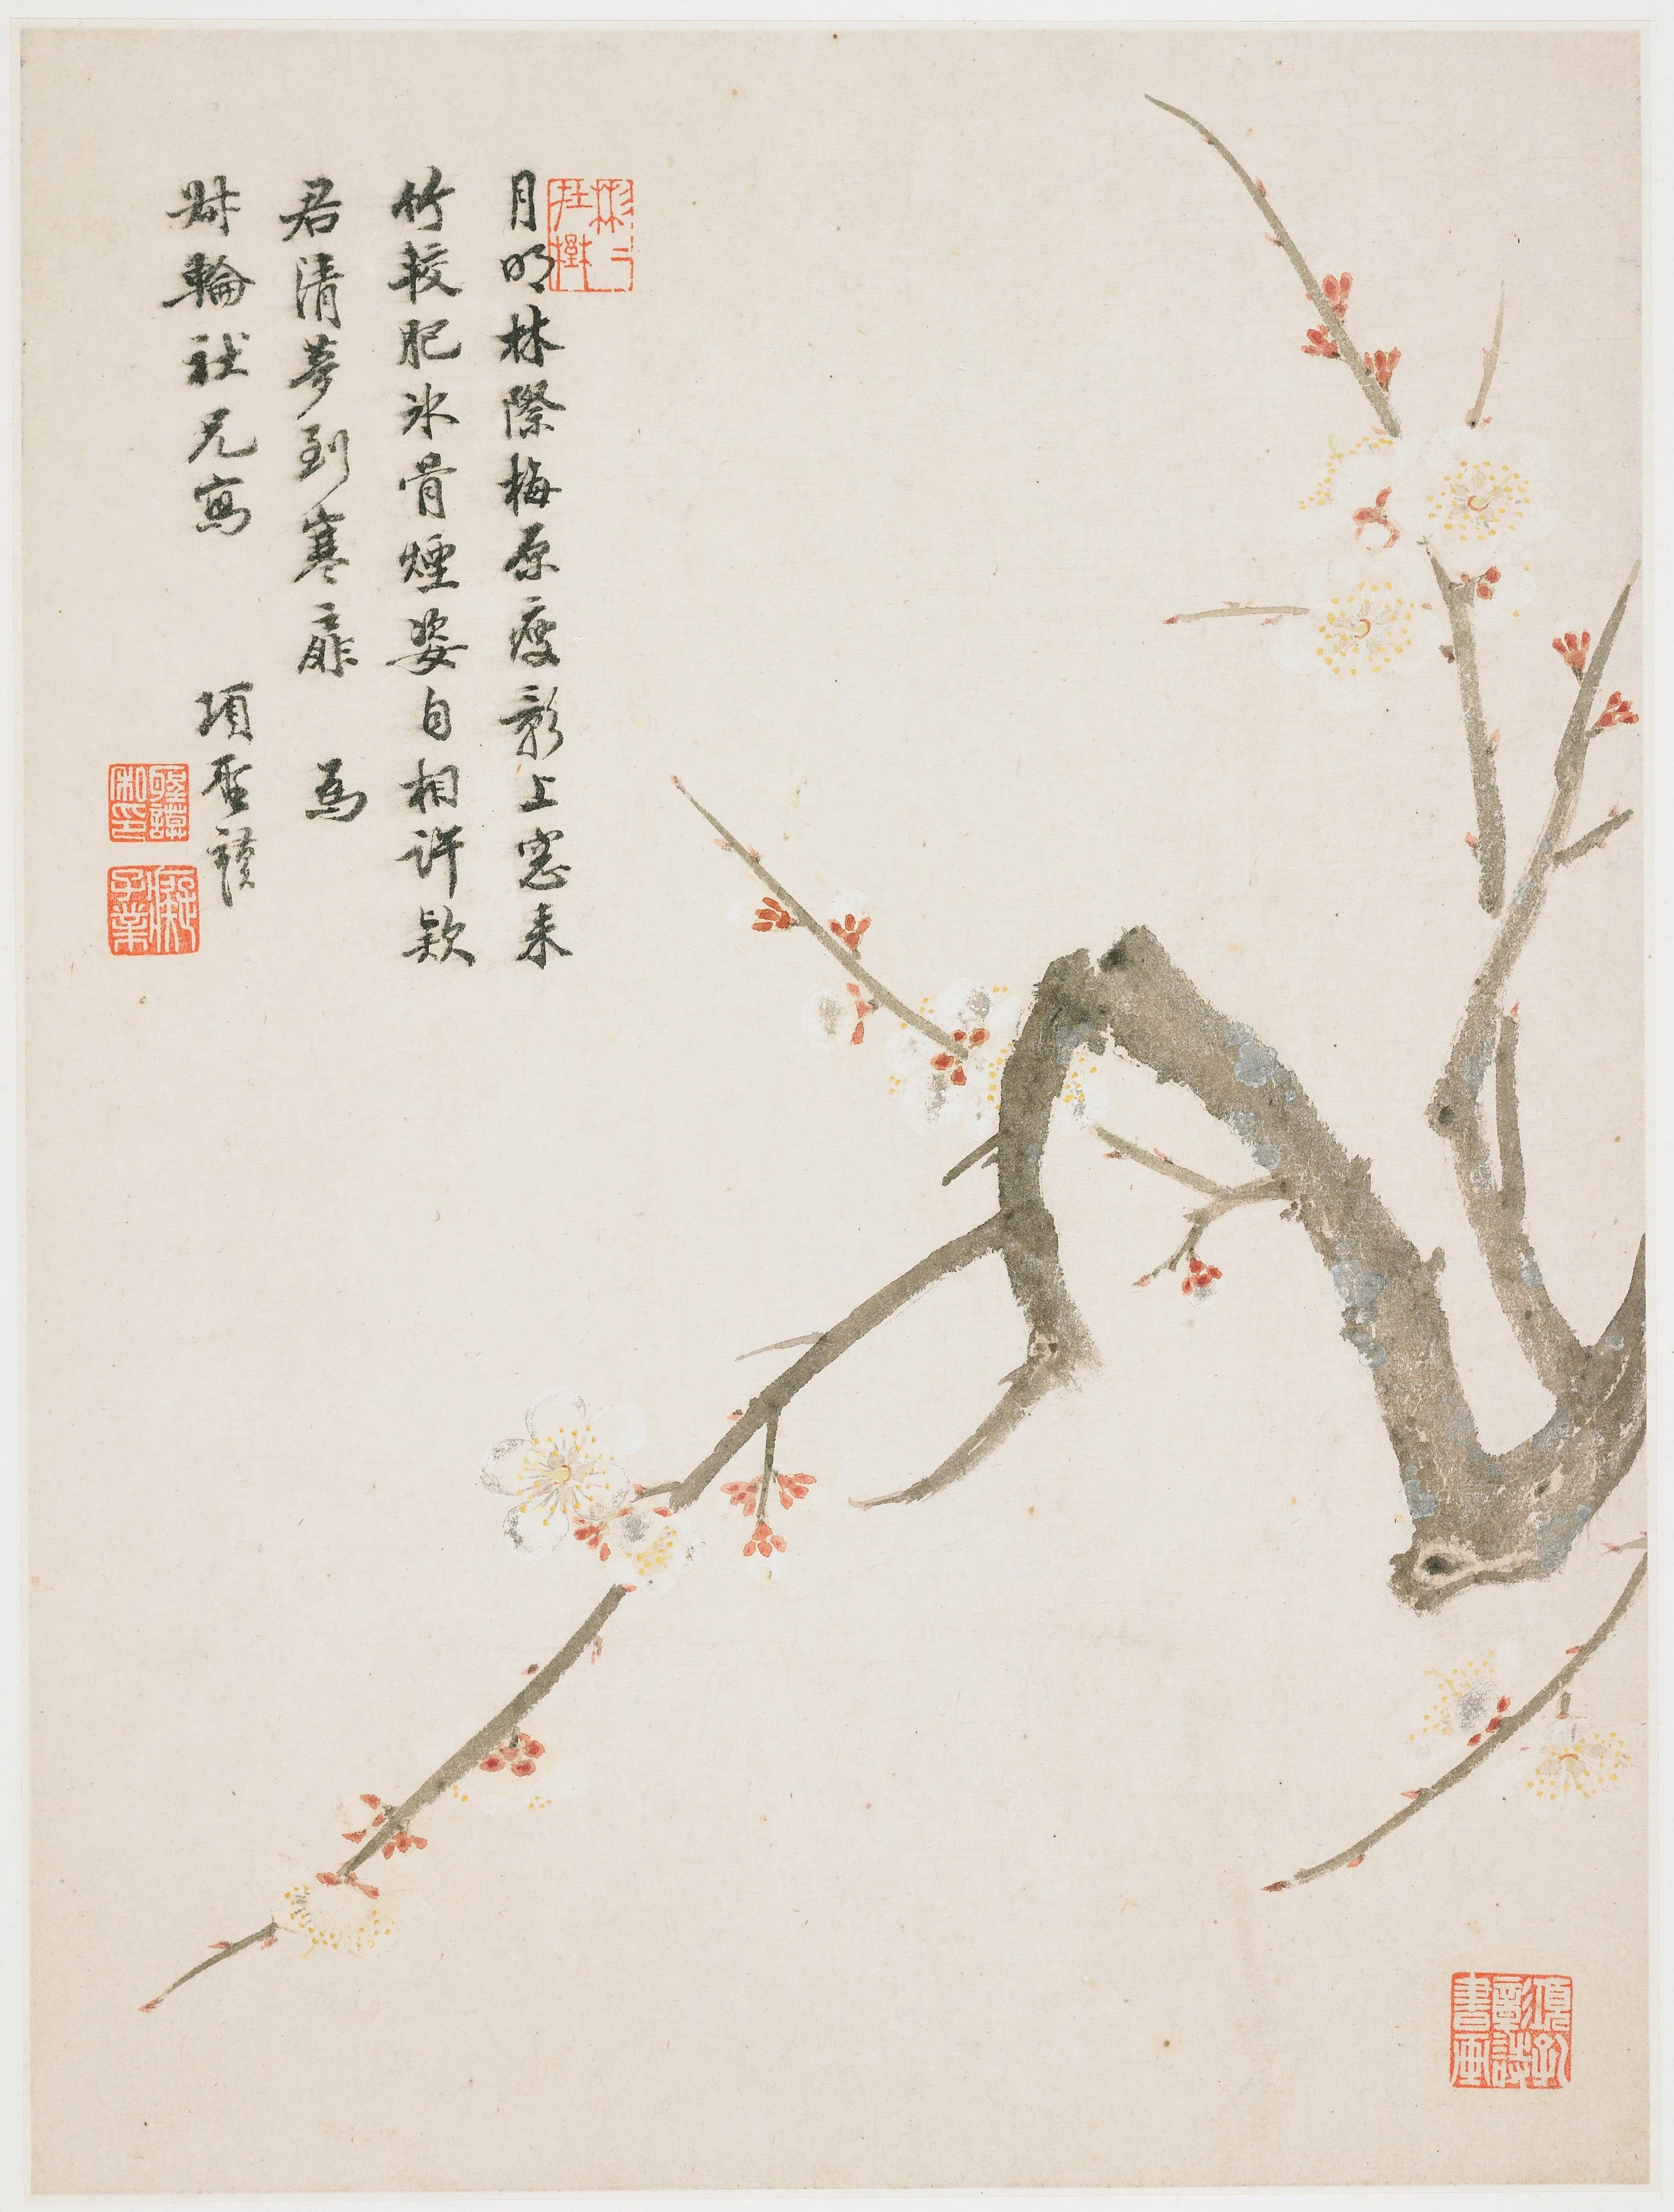 月明林際梅原瘦影上窓来
竹較肥氷骨煙姿自相許歘
君清夢到寒扉 為
尌輪社兄寫 項聖謨